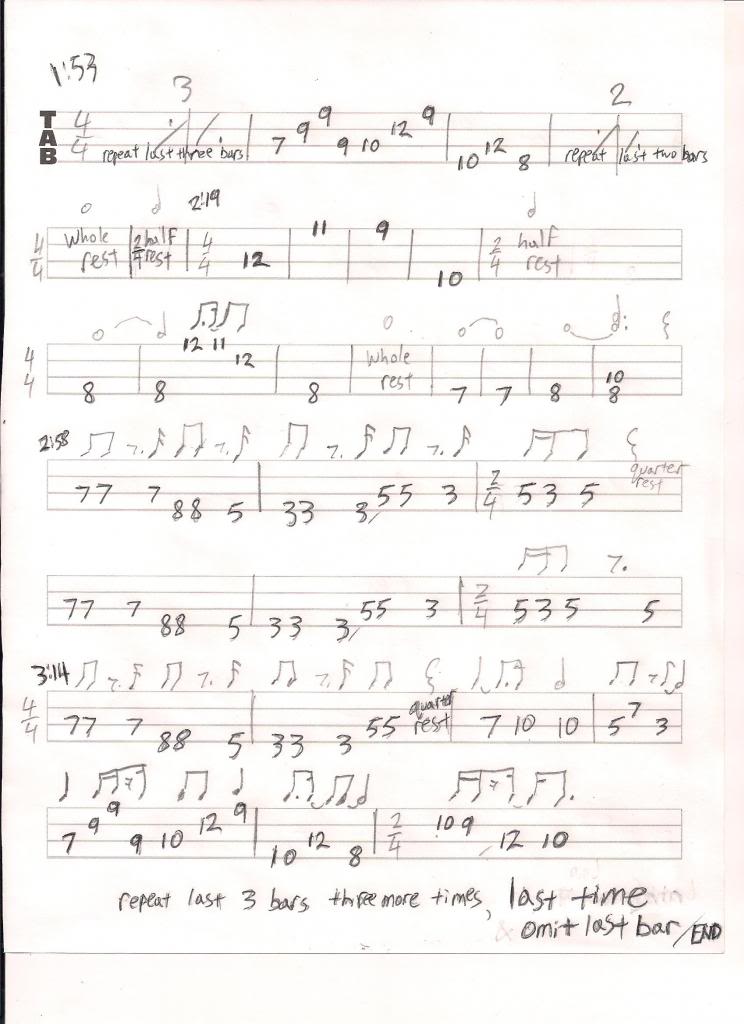 1:53
3 2
TAB 4/4 repeat last three bars 7 9 9 9 10 12 9 10 12 8 repeat last two bars
2:19
4/4 whole rest 2/4 half rest 4/4 12 11 9 10 2/4 half rest
4/4 8 8 12 11 12 8 whole rest 7 7 8 10 8
2:58
77 7 88 5 33 3 55 3 2/4 5 3 5 quarter rest
77 7 88 5 33 3 55 3 2/4 5 3 5 5
3:14
4/4 77 7 88 5 33 3 55 quarter rest 7 10 10 5 7 3
7 9 9 9 10 12 9 10 12 8 2/4 10 9 12 10
repeat last 3 bars three more times, last time
omit last bar/END